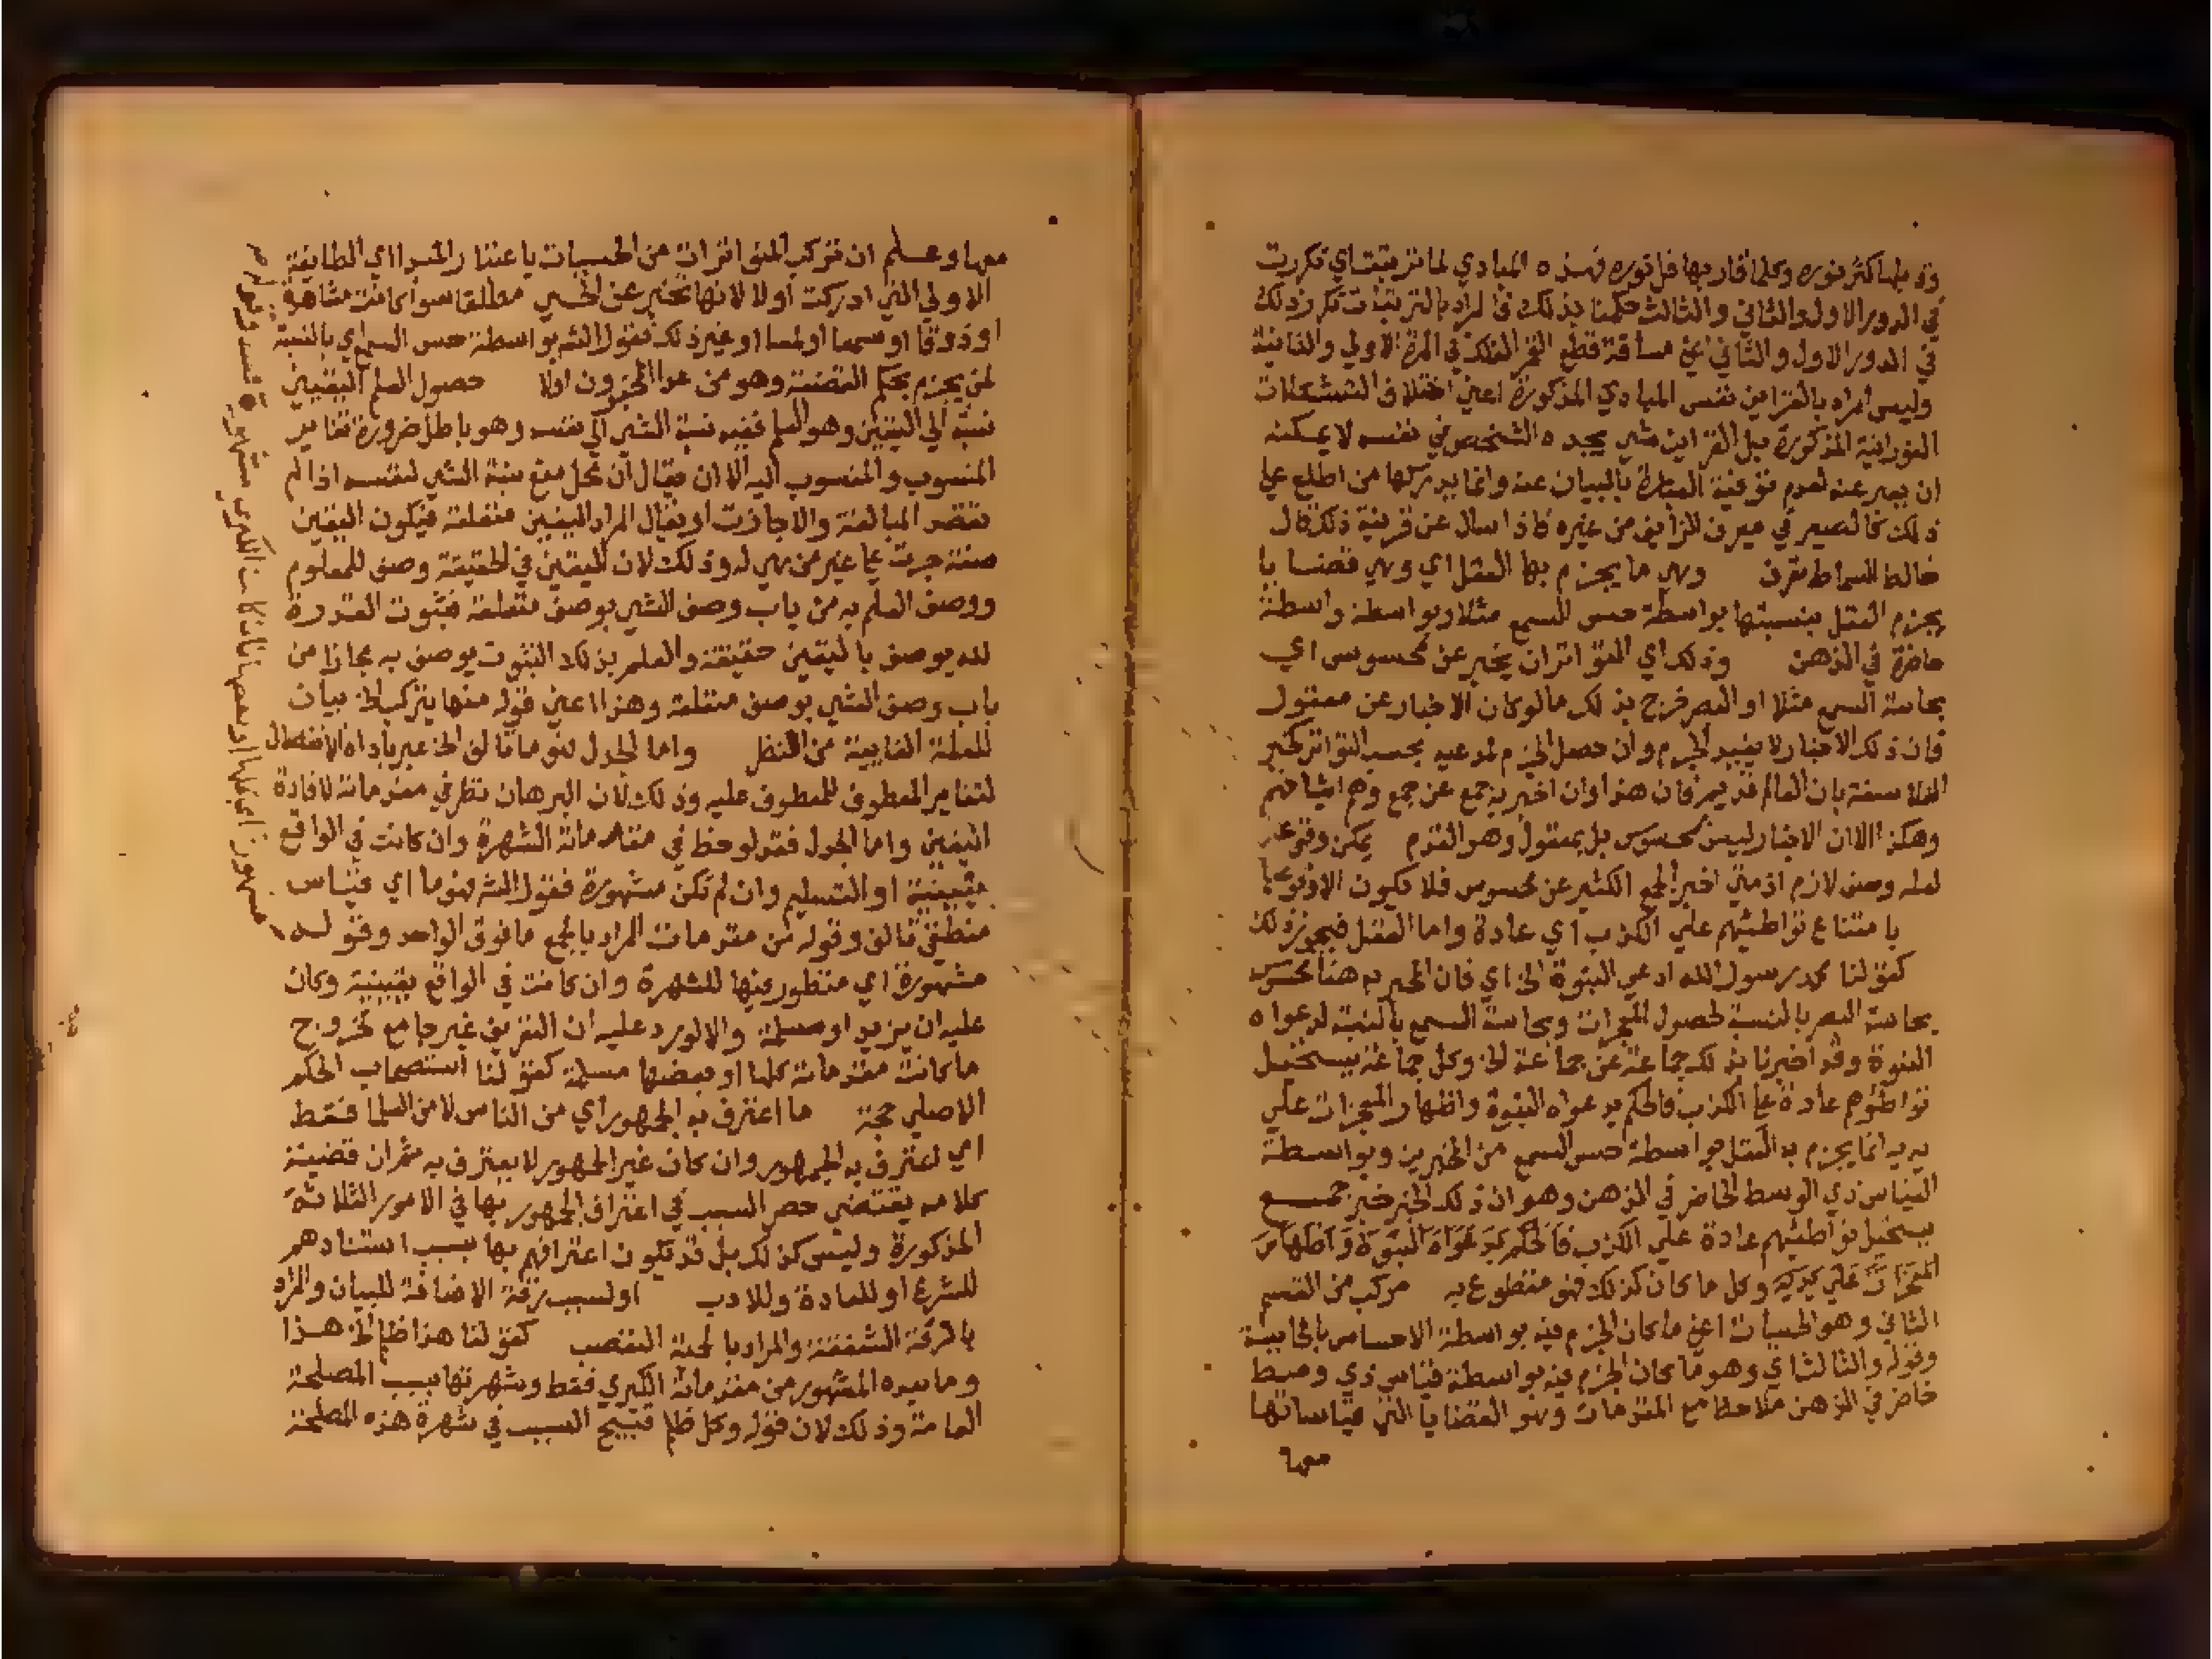 وذ بلها كثر نوره وكلما قاربها قل نوره فهذه المبادي لما ترتبت اي تكررت
في الدور الاول والثاني والثالث حكمنا بذلك فالمراد بالترتبات تكرر ذلك
في الدور الاول والثاني اعني مسافة قطع القمر الفلك في المرة الاولي والثانية
وليس المراد بالقراين نفس المبادي المذكورة اعني اختلاف التشكلات
النورانية المذكورة بل القراين شي يجده الشخص في نفسه لا يمكنه
ان يعبر عنه لعدم توفية العبارة بالبيان عنه وانما يدركها من اطلع علي
ذلك كالصيرفي ميرف الزايف من غيره فاذا سال عن قرينة ذلك قال
خالط السماط تعرف وهي ما يجزم بها العقل اي وهي قضايا
يجزم العقل بنسبتها بواسطة حس السمع مثلا وبواسطة واسطة
حاضرة في الذهن وذلك اي المتواتران يخبر عن محسوس اي
بحاسة السمع مثلا او البصر فرج بذلك ما لو كان الاخبار عن معقول
فان ذلك الاخبار لا يفيد الجزم وان حصل الجزم لمدعيه بحسب التواتر كخبر
الفلاسفة بان العالم قديم فان هذا وان اخبر به جمع عن جمع وهم اشياخهم
وهكذا الا ان الاخبار ليس بمحسوس بل بمعقول وهو القدم يمكن وقوعه
لعله وصف لازم اذ متي اخبر الجمع الكثير عن محسوس فلا يكون الا وقوعيا
بامتناع تواطئهم علي الكذب اي عادة واما العقل فيجوز ذلك
كقولنا محمد رسول الله ادعي النبوة الخ اي فان المخبر به هنا محسوس
بحاسة البصر بالنسبة لحصول المعجزات وبحاسة السمع بالنسبة لدعواه
النبوة وقد اخبرنا بذلك جماعة عن جماعة الخ وكل جماعة يستحيل
تواطؤهم عادة علي الكذب فالحكم بدعواه النبوة واظهار المعجزات علي
يديه انما يجزم به العقل بواسطة حس السمع من المخبرين وبواسطة
القياس ذي الوسط الحاضر في الذهن وهو ان ذلك الخبر خبر جمع
يستحيل تواطئهم عادة علي الكذب فالحكم بدعواه النبوة واظهار
المعجزات علي يديه وكل ما كان كذلك فهو مقطوع به مركب من القسم
الثاني وهو الحسيات اعني ما كان الجزم فيه بواسطة الاحساس بالحاسة
وقوله والثالث اي وهو ما كان الجزم فيه بواسطة قياس ذي وسط
حاضر في الذهن ملاحظا مع المقدمات وهو القضايا التي قياساتها
معها
معها وعلم ان تركب المتواترات من الحسيات باعتبار المبدا اي الطايفة
الاولي التي ادركت اولا لانها تخبر عن الحسي مطلقا سوا كانت مشاهدة
او ذوقا او سمعا او لمسا او غير ذلك فقول الشه بواسطة حس السمع اي بالنسبة
لمن يجزم بحكم القضية وهو من عدا المخبرون اولا حصول العلم اليقيني
نسبة الي اليقين وهو العلم ففيه نسبة الشي الي نفسه وهو باطل ضرورة تغاير
المنسوب والمنسوب اليه الا ان يقال ان محل منع نسبة الشي لنفسه اذا لم
تقصد المبالغة والا جازت او يقال المراد اليقين متعلقه فيكون اليقين
صفة جرت علي غير من هي له وذلك لان اليقين في الحقيقة وصف للمعلوم
ووصف العلم به من باب وصف الشي بوصف متعلقه فثبوت القدرة
لله يوصف باليقين حقيقة والعلم بذلك الثبوت يوصف به مجازا من
باب وصف الشي بوصف متعلقه وهذا اعني قوله منها يتركب الخ بيان
للعلة الغايية من النظر واما الجدل فهو ما تالف الخ عبر باداة الانفصال
لتغاير المعطوف للمعطوف عليه وذلك لان البرهان نظر في مقدماته لافادة
اليقين واما الجدل فقد لوحظ في مقدماته الشهرة وان كانت في الواقع
يقينية او التسليم وان لم تكن مشهورة فقول الشه فهو ما اي قياس
منطقي تالف وقوله من مقدمات المراد بالجمع ما فوق الواحد وقوله
مشهورة اي منظور فيها للشهرة وان كانت في الواقع يقينية وكان
عليه ان يزيد او مسلمة والا لورد عليه ان التعريف غير جامع لخروج
ما كانت مقدماته كلها او بعضها مسلمة كقولنا استصحاب الحكم
الاصلي حجة ما اعترف به الجمهور اي من الناس لا من العلما فقط
اي اعترف به الجمهور وان كان غير الجمهور لا يعترف به ثم ان قضية
كلامه يقتضي حصر السبب في اعتراف الجمهور بها في الامور الثلاثة
المذكورة وليس كذلك بل قد تكون اعترافهم بها بسبب استنادهم
للشرع او للعادة وللادب او لسبب رقة الاضافة للبيان والمراد
بالرقة الشفقة والمراد بالحمية التعصب كقولنا هذا ظلم الخ هذا
وما بعده المشهور من مقدماته الكبري فقط وشهرتها بسبب المصلحة
العامة وذلك لان قوله وكل ظلم قبيح السبب في شهرة هذه المصلحة